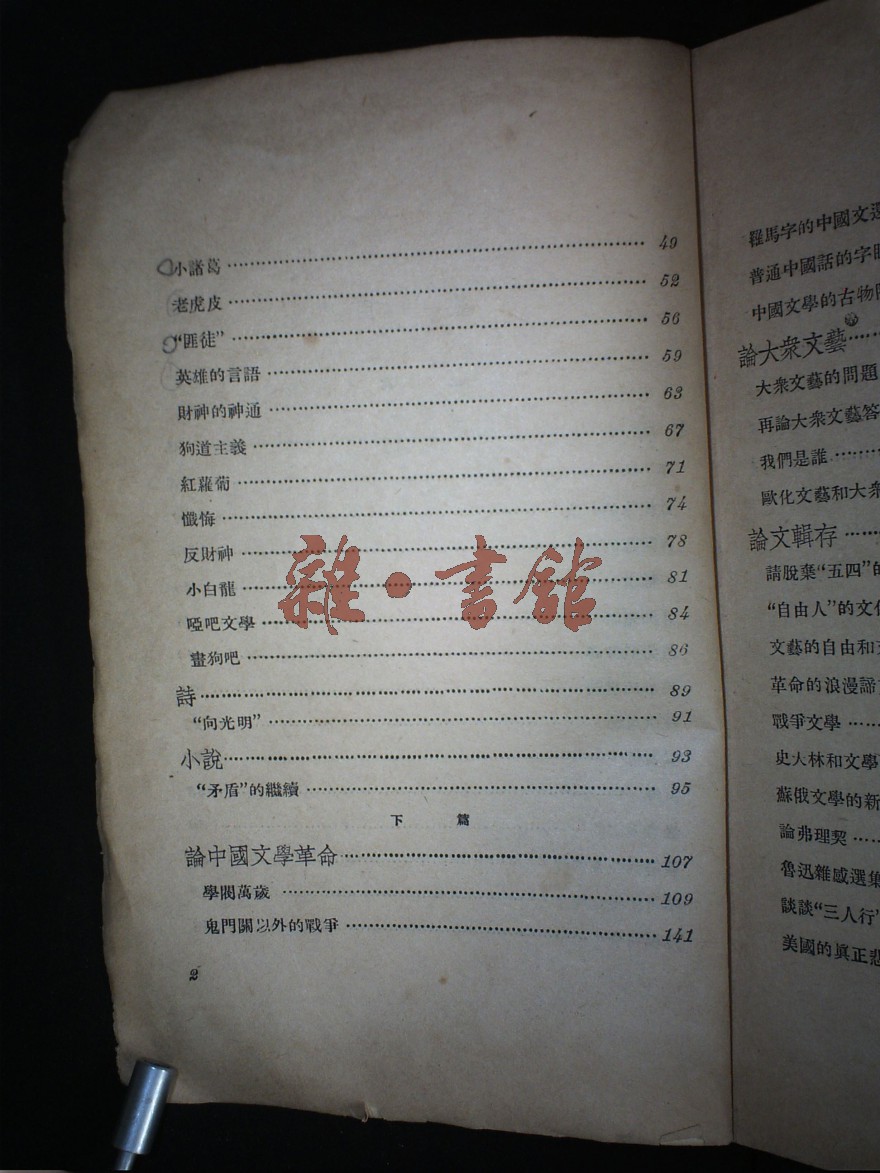 小諸葛 49
老虎皮 52
“匪徒” 56
英雄的言語 59
財神的神通 63
狗道主義 67
紅蘿蔔 71
懺悔 74
反財神 78
小白龍 81
啞吧文學 84
畫狗吧 86
詩 89
“向光明” 91
小說 93
“矛盾”的繼續 95
下 篇
論中國文學革命 107
學閥萬歲 109
鬼門關以外的戰爭 141
2
雜·書館
羅馬字的中國文
普通中國話的字
中國文學的古物
論大衆文藝
大衆文藝的問題
再論大衆文藝答
我們是誰
歐化文藝和大衆
論文輯存
請脫棄“五四”的
“自由人”的文
文藝的自由和
革命的浪漫諦
戰爭文學
史大林和文學
蘇俄文學的新
論弗理契
魯迅雜感選集
談談“三人行”
美國的眞正悲